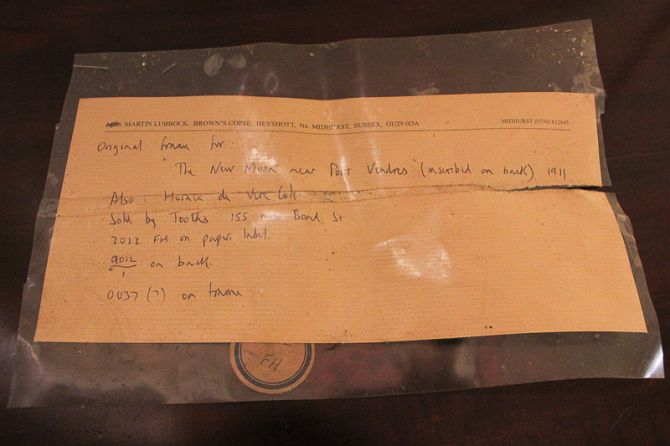 MARTIN LUBBOCK, BROWN'S COPSE, HEYSHOTT, Nr. MIDHURST, SUSSEX, GU29 0DA
MIDHURST (0730) 812645
Original frame for:
"The New Moon near Port Vendres" (inscribed on back) 1911
Also: Horace de Vere Cole
Sold by Tooths 155 New Bond St
2022 FH on paper label
9012 on back
1
0037 (?) on frame
FH